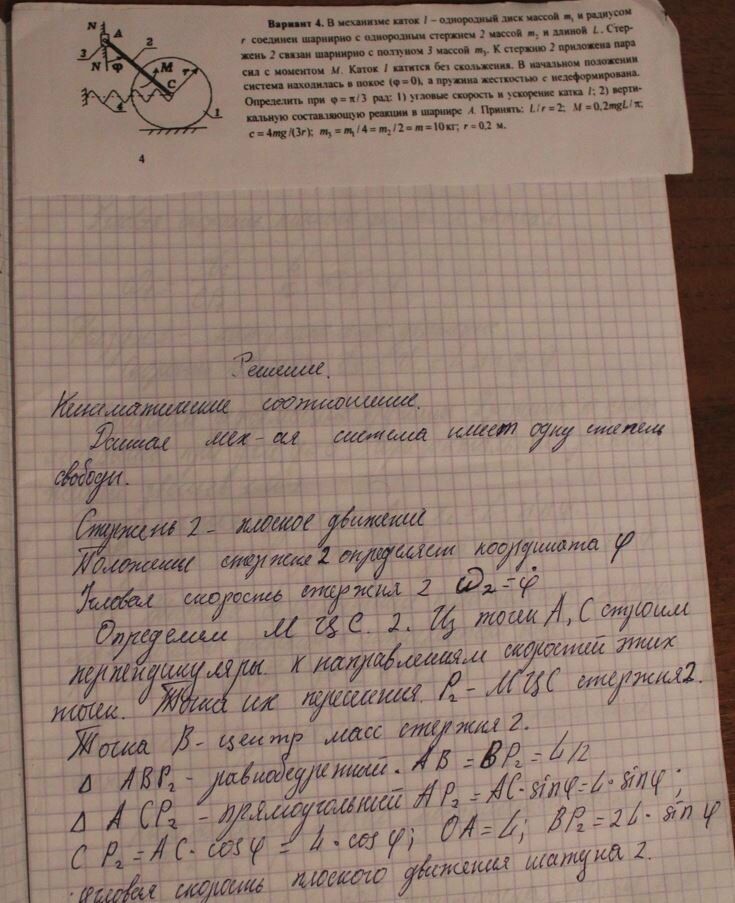 N
A
2
3
N
φ
M
r
C
4
1
4
Вариант 4. В механизме каток 1 – однородный диск массой m₁ и радиусом
r соединен шарнирно с однородным стержнем 2 массой m₂ и длиной L. Стер-
жень 2 связан шарнирно с ползуном 3 массой m₃. К стержню 2 приложена пара
сил с моментом M. Каток 1 катится без скольжения. В начальном положении
система находилась в покое (φ=0), а пружина жесткостью c недеформирована.
Определить при φ=π/3 рад: 1) угловые скорость и ускорение катка 1; 2) верти-
кальную составляющую реакции в шарнире A. Принять: L/r=2; M=0,2mgL/π;
c=4mg/(3r); m₃=m₁/4=m₂/2=m=10кг; r=0,2 м.
Решение.
Кинематические соотношение.
Данная мех-ая система имеет одну степень
свободы.
Стержень 2 - плоское движение
Положение стержня 2 определяет координата φ
Угловая скорость стержня 2 ω₂=φ̇
Определяем МЦС. 2. Из точек A, C строим
перпендикуляры к направлениям скоростей этих
точек. Точка их пересения P₂ - МЦС стержня 2.
Точка B - центр масс стержня 2.
Δ ABP₂ - равнобедренный. AB = BP₂ = L/2
Δ ACP₂ - прямоугольний AP₂ = AC·sinφ = L·sinφ;
CP₂ = AC·cosφ = L·cosφ; OA = L; BP₂ = 2L·sinφ
Угловая скорость плоского движения шатуна 2.